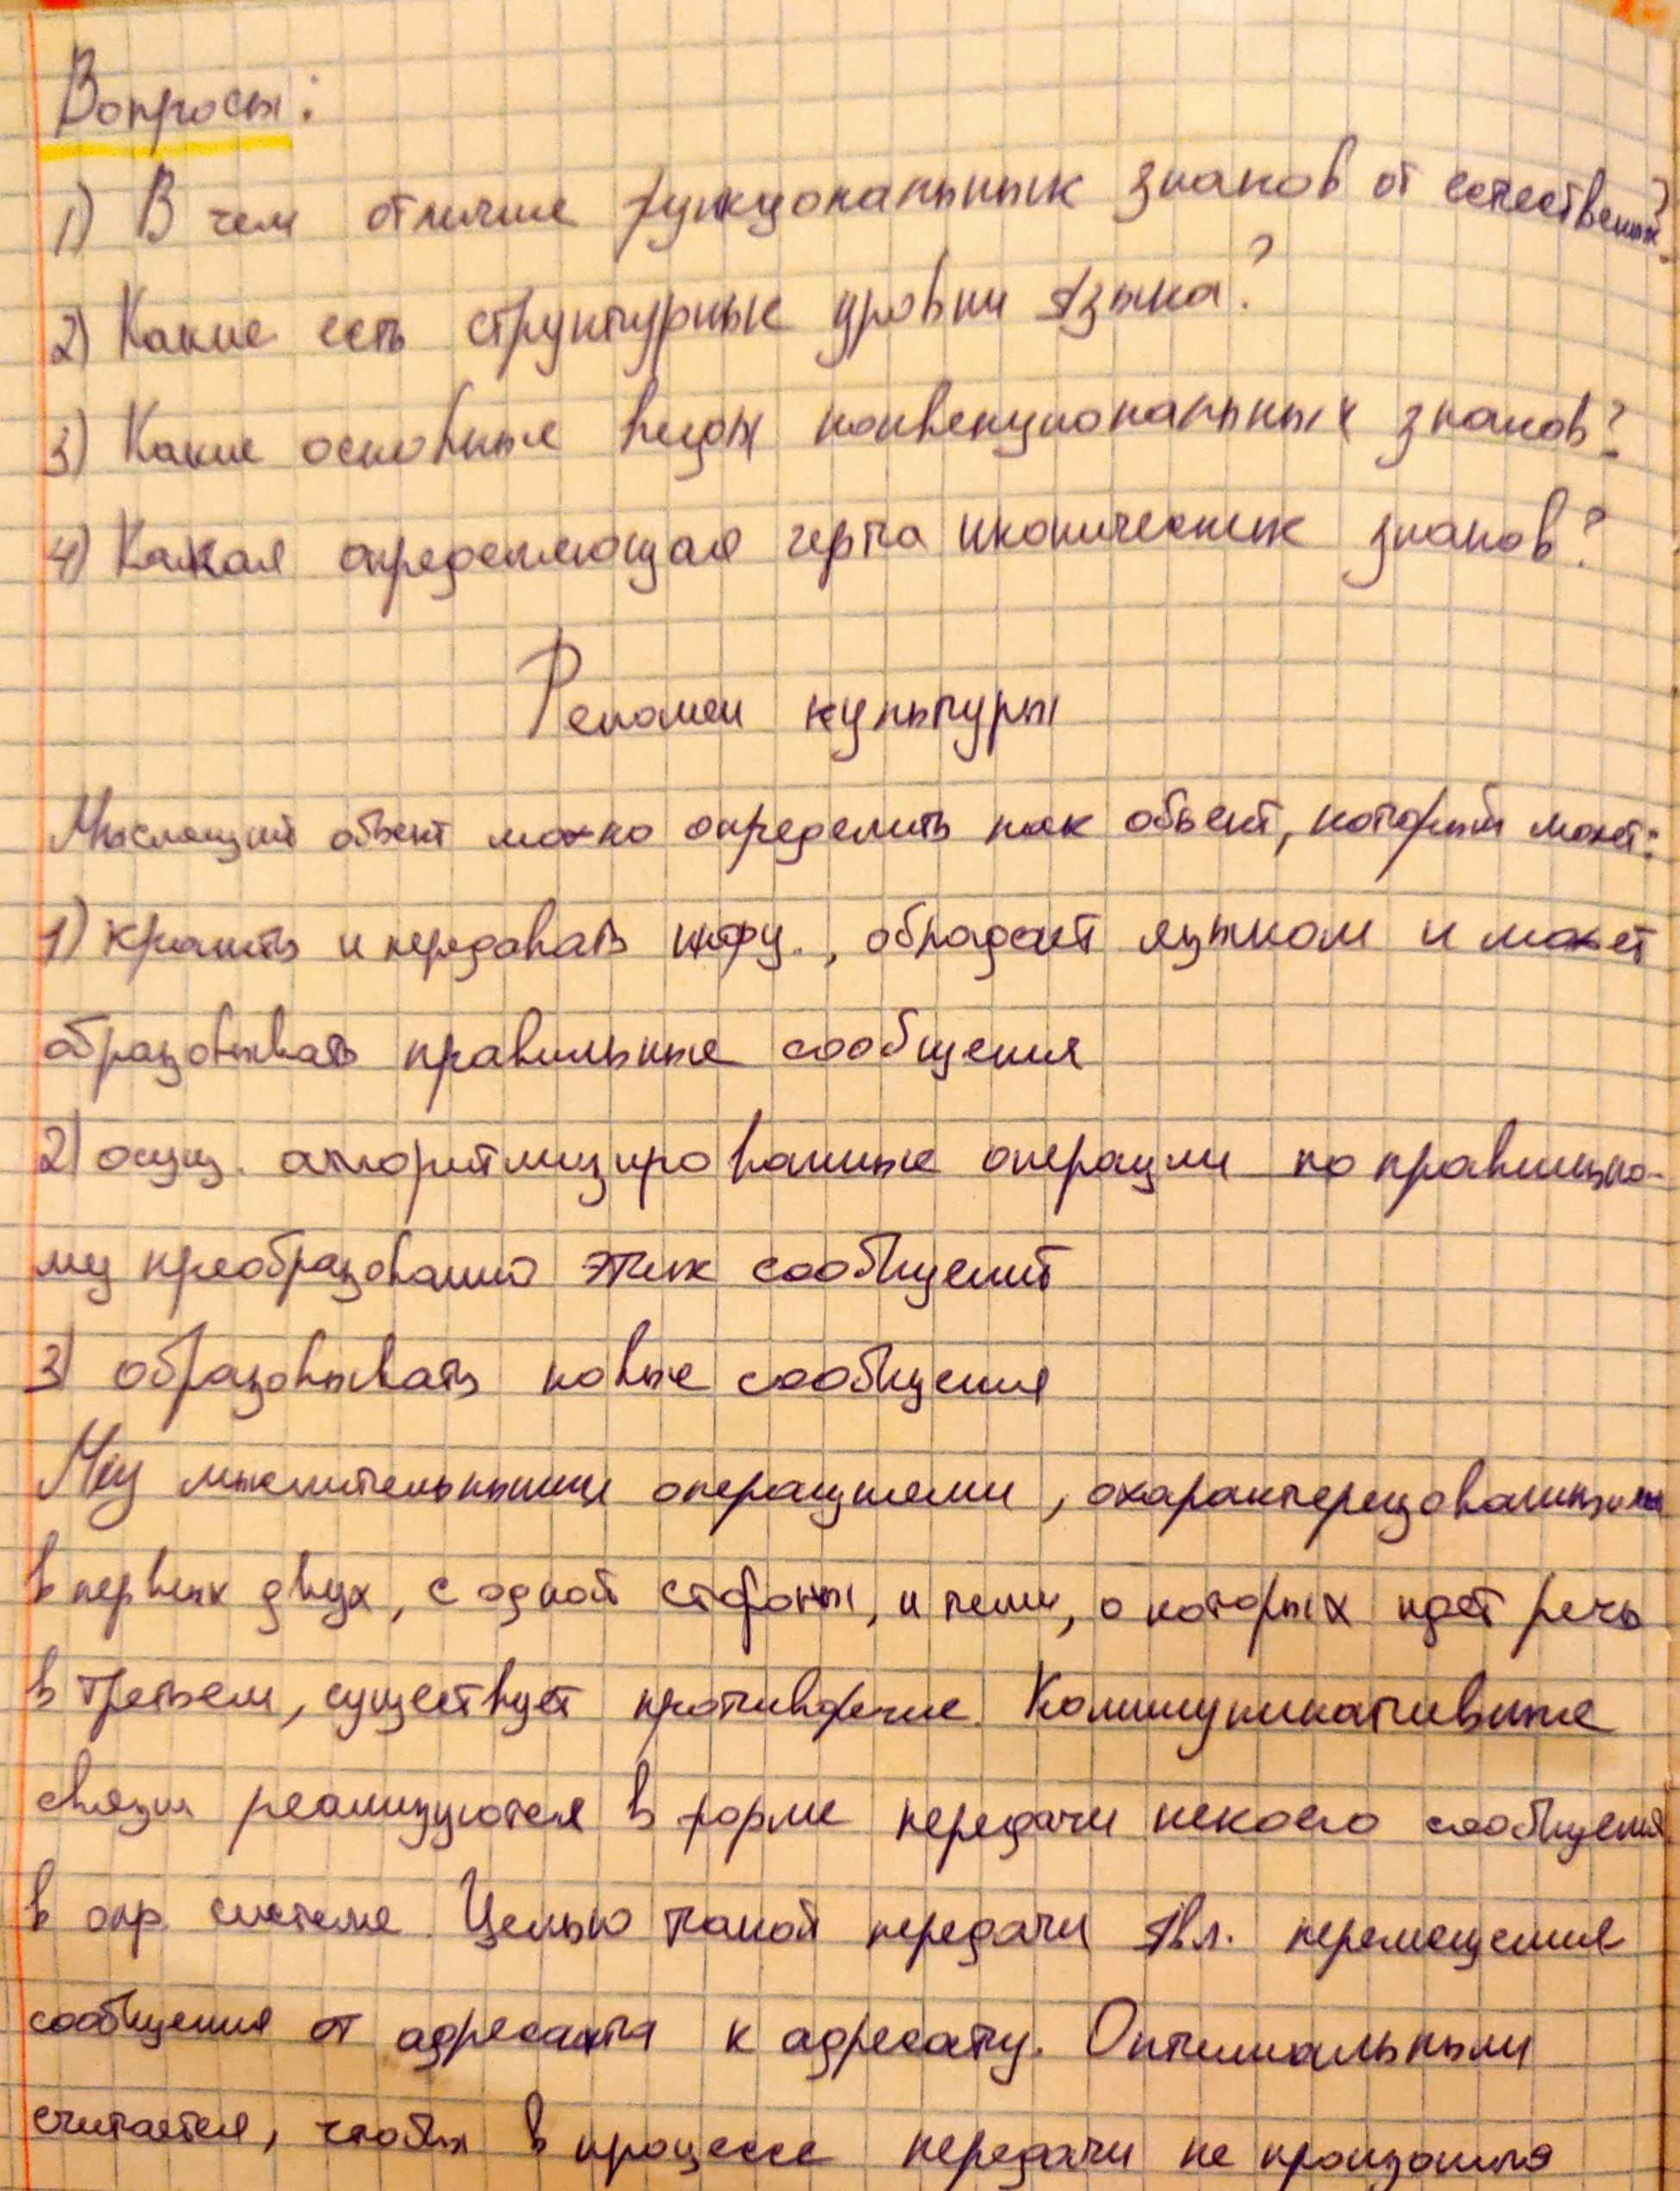 Вопросы:
1) В чем отличие функциональных знаков от естественных?
2) Какие есть структурные уровни языка?
3) Какие основные виды конвенциональных знаков?
4) Какая определяющая черта иконических знаков?
Феномен культуры
Мыслящий объект можно определить как объект, который может:
1) хранить и передавать инфу., обладает языком и может
образовывать правильные сообщения
2) осущ. алгоритмизированные операции по правильно-
му преобразованию этих сообщений
3) образовывать новые сообщения
Между мыслительными операциями, охарактеризованными
в первых двух, с одной стороны, и теми, о которых идет речь
в третьем, существует противоречие. Коммуникативные
связи реализуются в форме передачи некоего сообщения
в опр. системе. Целью такой передачи явл. перемещения
сообщения от адресанта к адресату. Оптимальными
считается, чтобы в процессе передачи не произошло